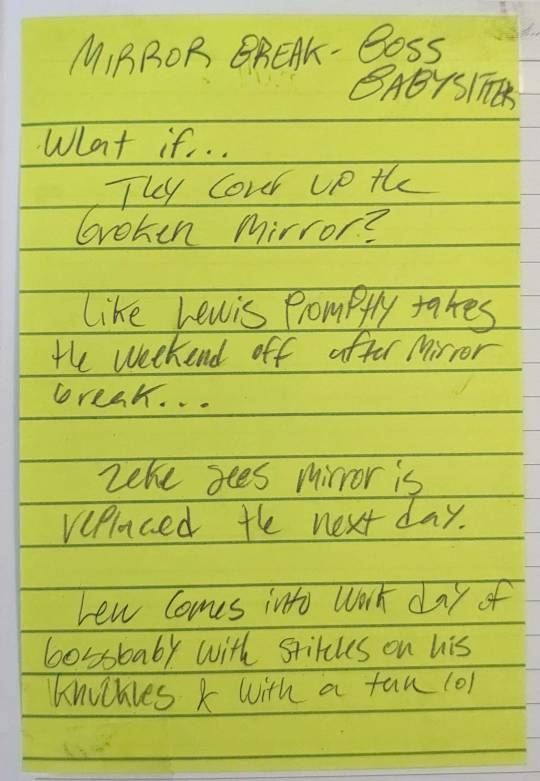 MIRROR BREAK - BOSS
BABYSITTER
What if...
They cover up the
broken mirror?
Like Lewis promptly takes
the weekend off after mirror
break...
Zeke sees mirror is
replaced the next day.
Lew comes into work day of
bossbaby with stitches on his
knuckles & with a tan lol